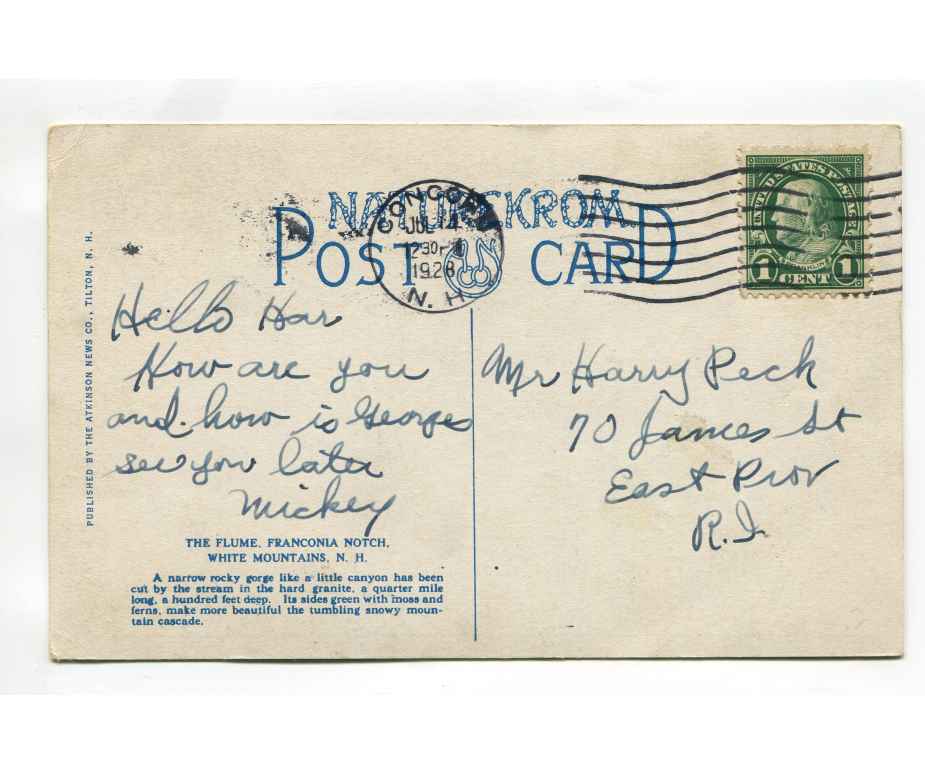 PUBLISHED BY THE ATKINSON NEWS CO., TILTON, N. H.
POST CARD
CONCORD
JUL 14
1928
N. H.
UNITED STATES POSTAGE
1 CENT 1
Hello Har
How are you
and how is Georges
see you later
Mickey
THE FLUME, FRANCONIA NOTCH,
WHITE MOUNTAINS, N. H.
A narrow rocky gorge like a little canyon has been
cut by the stream in the hard granite, a quarter mile
long, a hundred feet deep. Its sides green with moss and
ferns, make more beautiful the tumbling snowy moun-
tain cascade.
Mr Harry Peck
70 James St
East Prov
R.I.